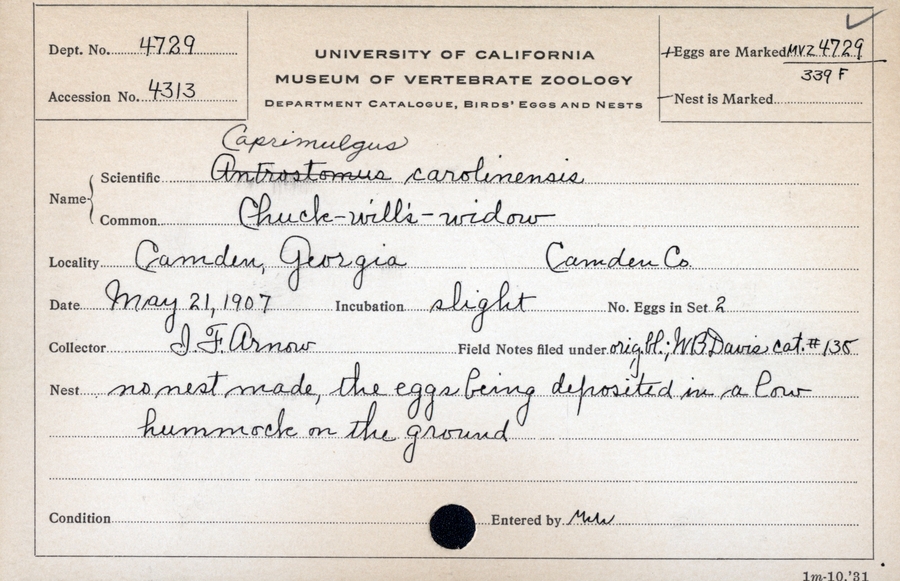 Dept. No. 4729
Accession No. 4313
UNIVERSITY OF CALIFORNIA
MUSEUM OF VERTEBRATE ZOOLOGY
DEPARTMENT CATALOGUE, BIRDS' EGGS AND NESTS
Eggs are Marked MVZ 4729
339 F
Nest is Marked
Caprimulgus
Name Scientific Antrostomus carolinensis
Common Chuck-will's-widow
Locality Camden, Georgia Camden Co.
Date May 21, 1907 Incubation slight No. Eggs in Set 2
Collector I. F. Arnow Field Notes filed under orig. bl.; WB Davis cat. # 135
Nest no nest made, the eggs being deposited in a low
hummock on the ground
Condition Entered by
1m-10,'31